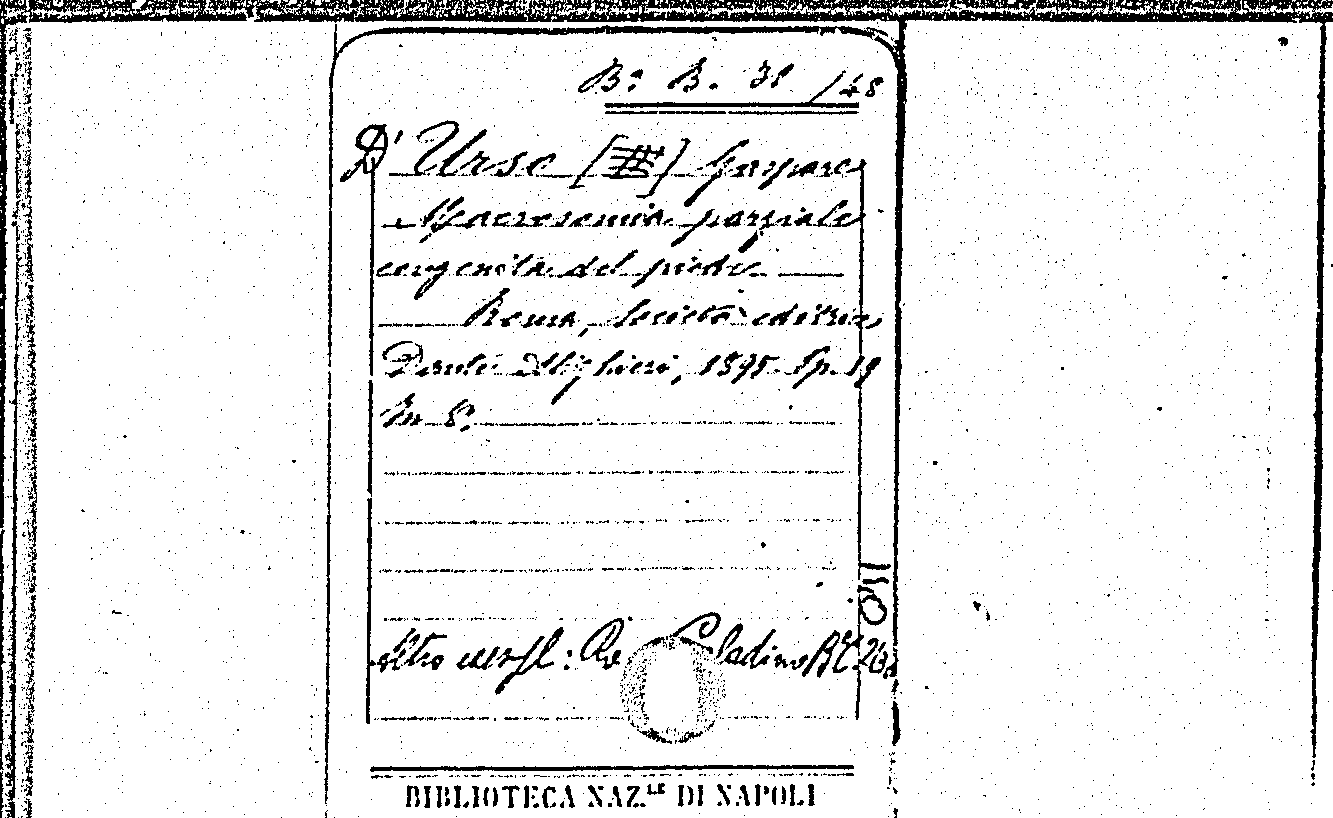 Ba B. 38 /48
D'Urso [ ] Gaspare
Macrosomia parziale
congenita del piede
Roma, Società editrice
Dante Alighieri, 1895 pp. 19
in 8°.
altro esempl: Paladino
BIBLIOTECA NAZ.LE DI NAPOLI